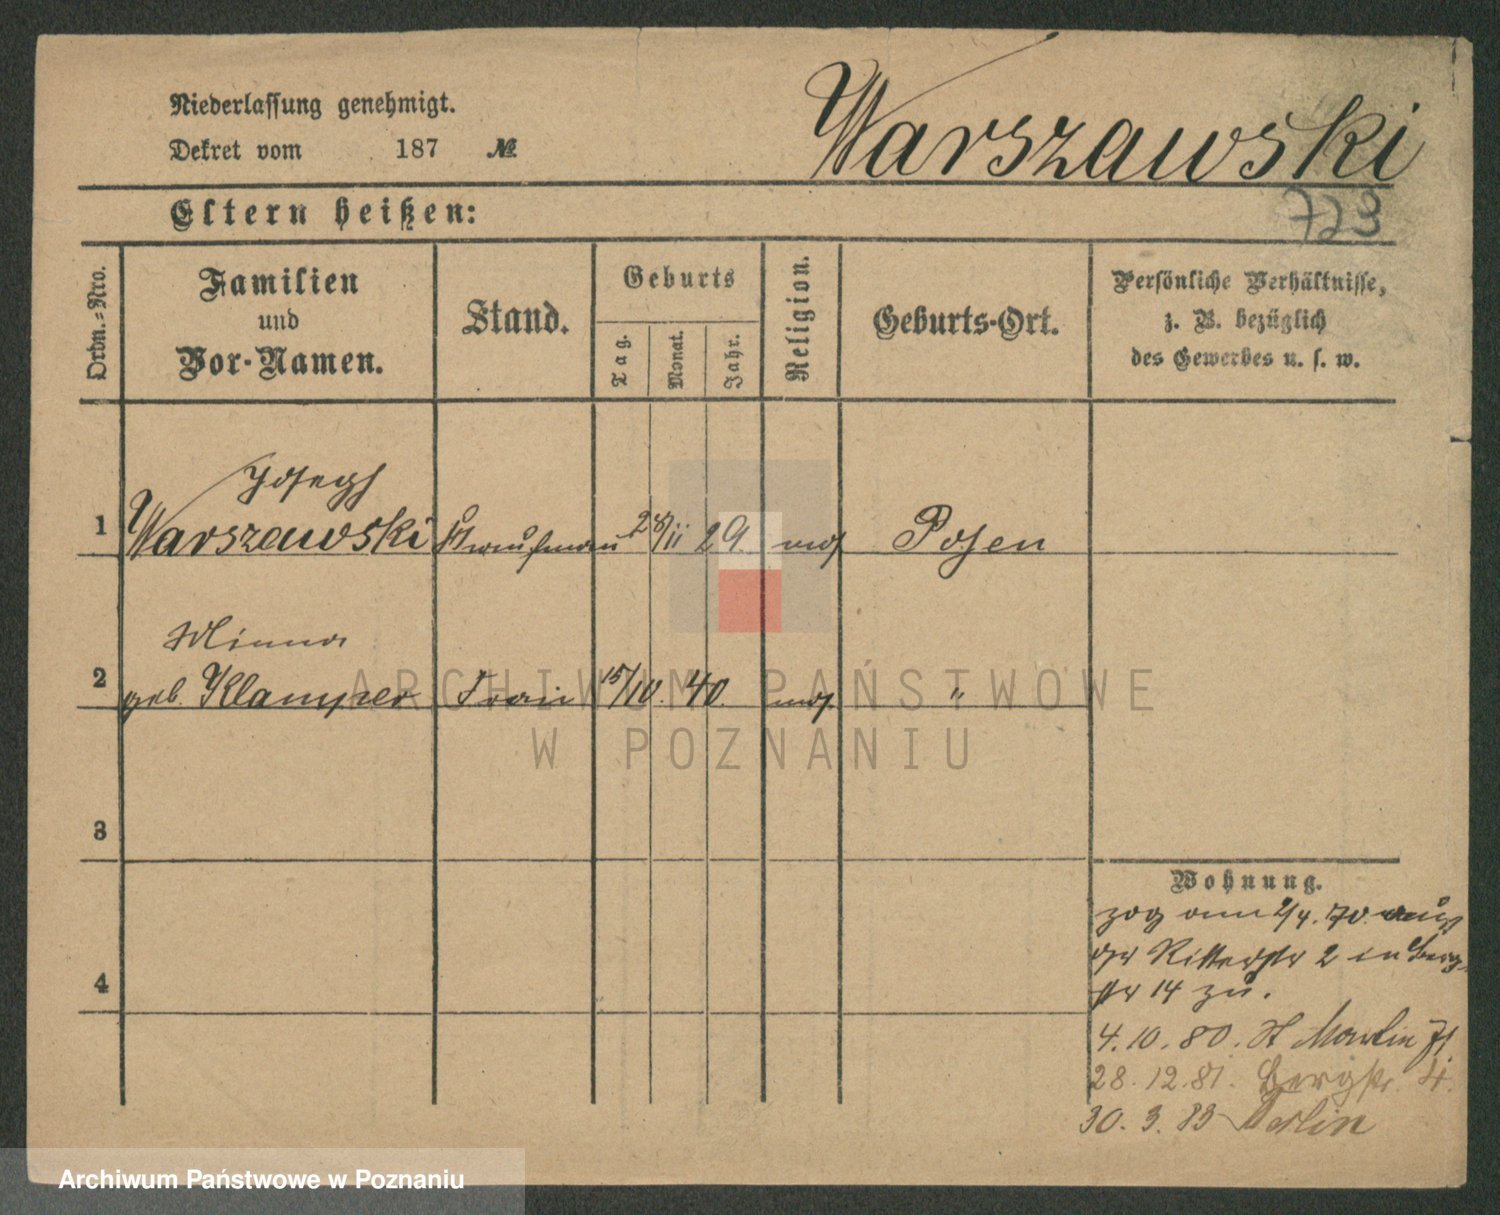 Niederlassung genehmigt.
Dekret vom 187 №
Warszawski
Eltern heißen:
723
Ordn.-Nro.
Familien
und
Vor-Namen.
Stand.
Geburts
Tag.
Monat.
Jahr.
Religion.
Geburts-Ort.
Persönliche Verhältnisse,
z. B. bezüglich
des Gewerbes u. s. w.
Joseph
1 Warszawski Kaufmann 28/11 29. mos Posen
Minna
2 geb. Klamper Frau 15/10. 40. mos. "
ARCHIWUM PAŃSTWOWE
W POZNANIU
3
4
Wohnung.
zog am 2/4. 70. aus
der Ritterstr 2 in Berg-
str 14 zu.
4. 10. 80. St Martin 71.
28. 12. 81. Bergstr. 4.
30. 3. 83 Berlin
Archiwum Państwowe w Poznaniu